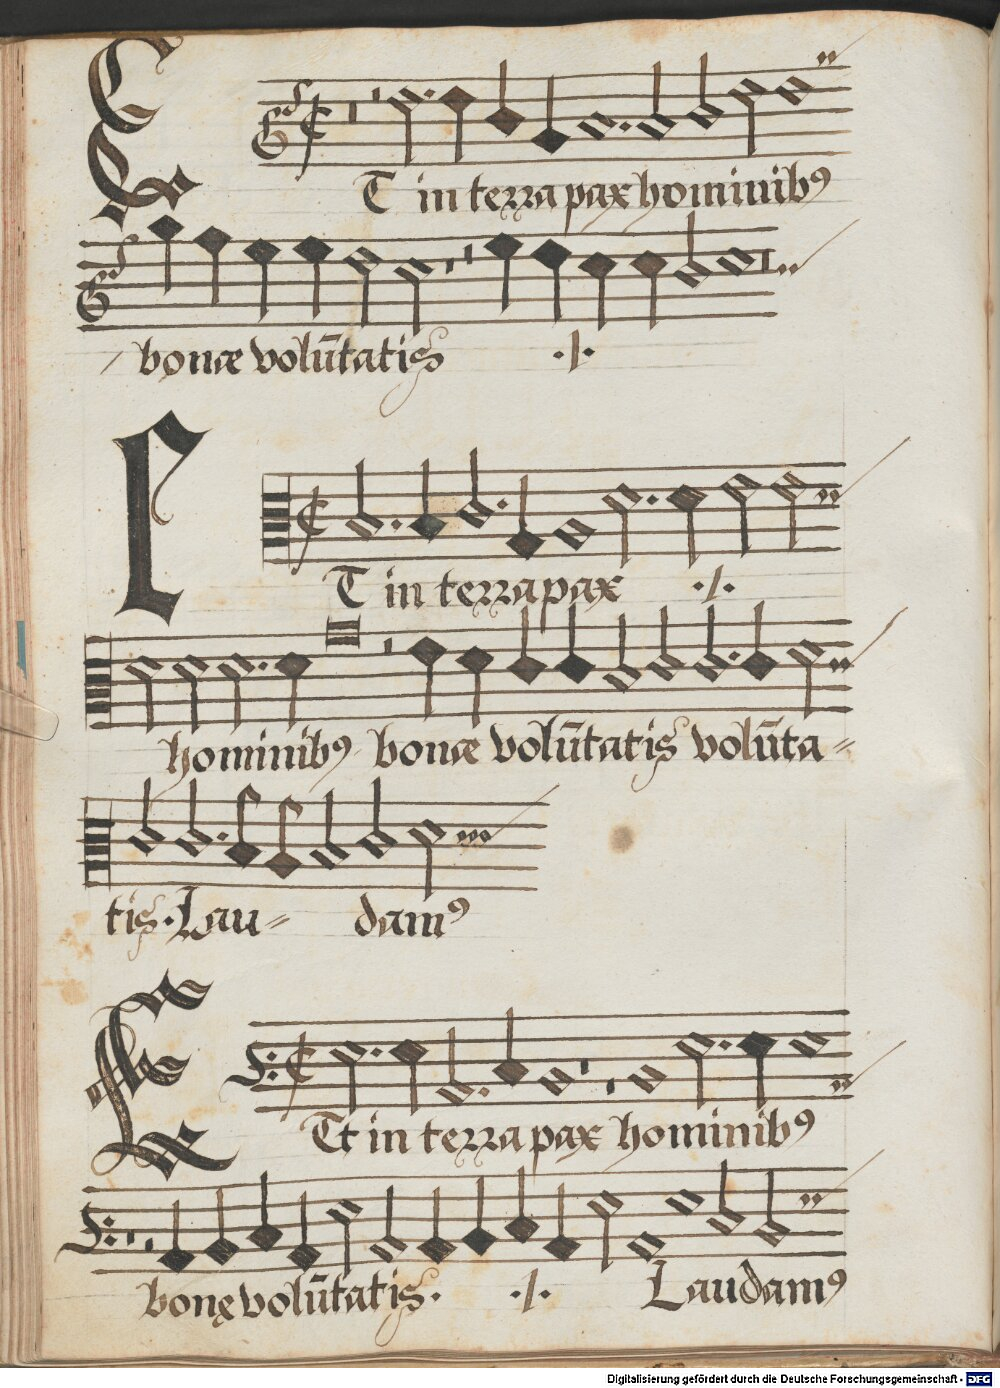 ET in terra pax hominibꝰ
bonæ volūtatis ·/·
ET in terra pax ·/·
hominibꝰ bonæ volūtatis volūta=
tis. Lau= damꝰ
Et in terra pax hominibꝰ
bonę volūtatis. ·/· Laudamꝰ
Digitalisierung gefördert durch die Deutsche Forschungsgemeinschaft - DFG